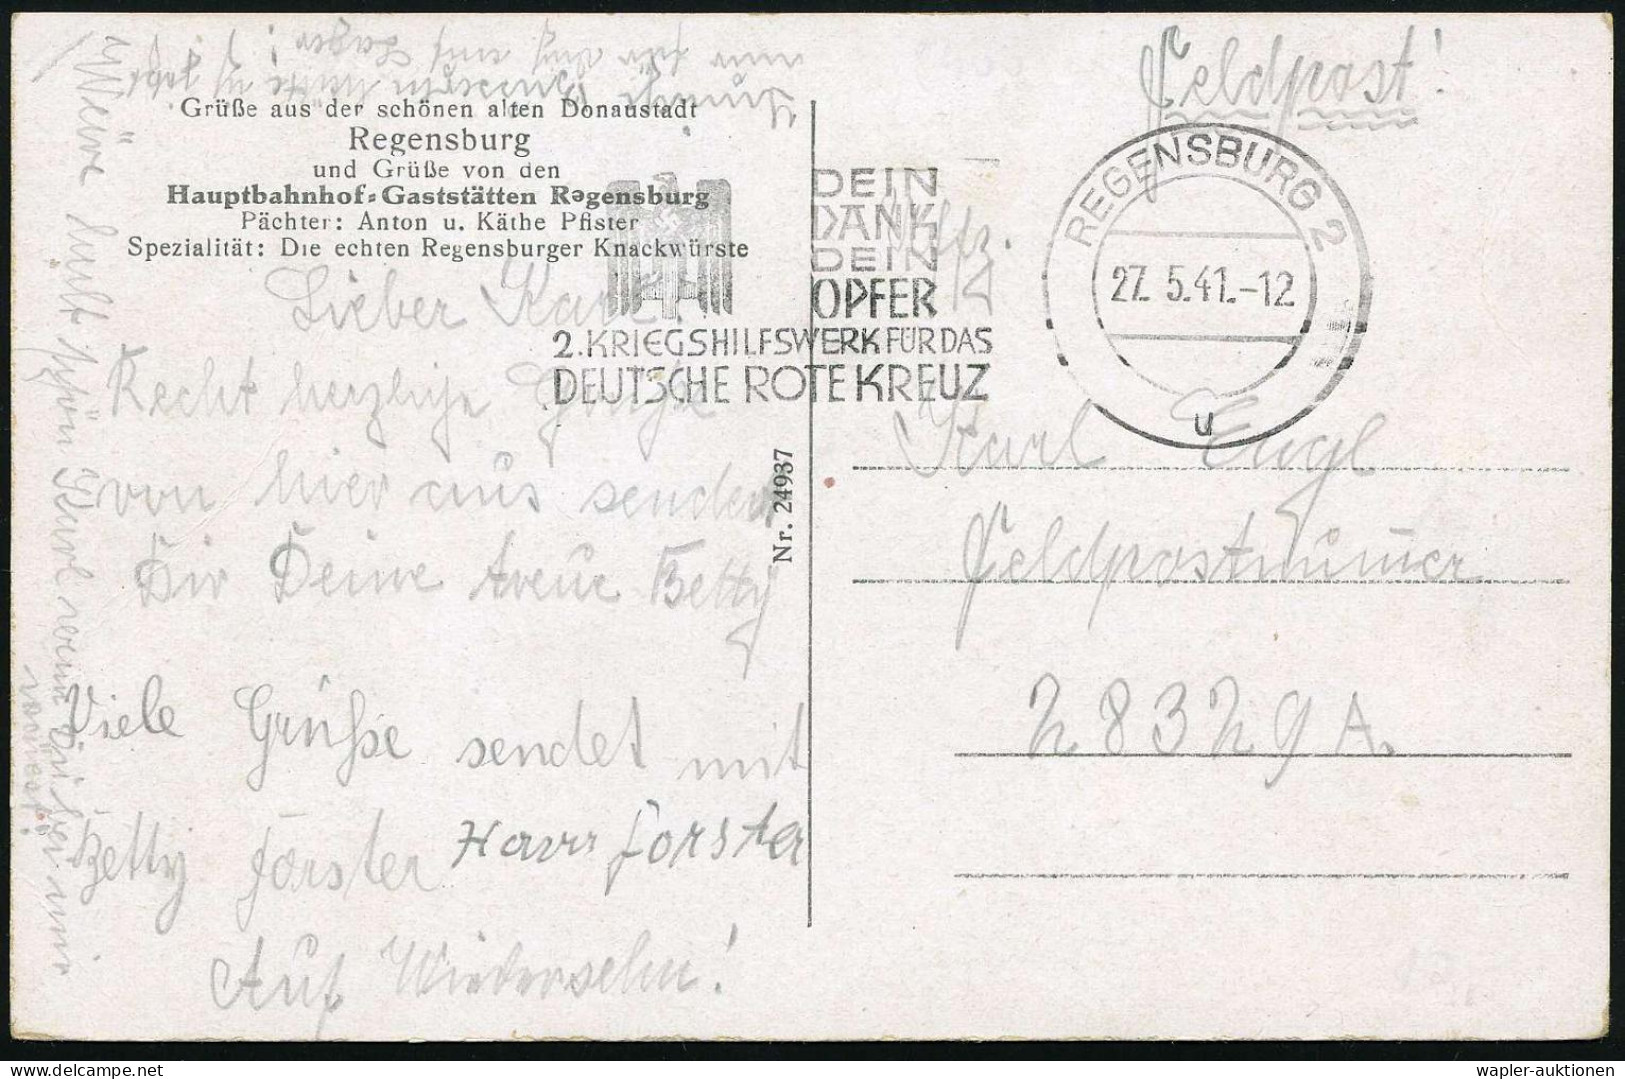 Feldpost!
Grüße aus der schönen alten Donaustadt
Regensburg
und Grüße von den
Hauptbahnhof-Gaststätten Regensburg
Pächter: Anton u. Käthe Pfister
Spezialität: Die echten Regensburger Knackwürste
DEIN
DANK
DEIN
OPFER
2. KRIEGSHILFSWERK FÜR DAS
DEUTSCHE ROTE KREUZ
REGENSBURG 2
27. 5.41.-12
u
Lieber Karl!
Recht herzliche Grüße
von hier aus sendet
Dir Deine treue Betty
Viele Grüße sendet mit
Betty Forster Hans Forster
Auf Wiedersehn!
Wäre halt schön Karl wenn Du bei mir
wärest!
nur für auf Lager!
Nr. 24937
Karl Engl
Feldpostnummer
28329 A.
wapler-auktionen